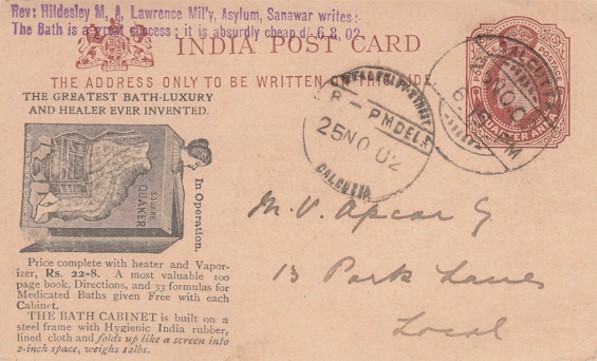 Rev: Hildesley M. A. Lawrence Mil'y, Asylum, Sanawar writes:-
The Bath is a great success; it is absurdly cheap d/. 6, 8, 02
INDIA POST CARD
THE ADDRESS ONLY TO BE WRITTEN THIS SIDE.
THE GREATEST BATH-LUXURY
AND HEALER EVER INVENTED.
SQUARE
QUAKER
In Operation.
Price complete with heater and Vapor-
izer, Rs. 22-8. A most valuable 100
page book, Directions, and 33 formulas for
Medicated Baths given Free with each
Cabinet.
THE BATH CABINET is built on a
steel frame with Hygienic India rubber,
lined cloth and folds up like a screen into
2-inch space, weighs 12lbs.
POSTAGE
QUARTER ANNA
CALCUTTA
WELLESLEY STREET
PM DELY
25 NO 02
CALCUTTA
M. V. Apcar
13 Park Lane
Local